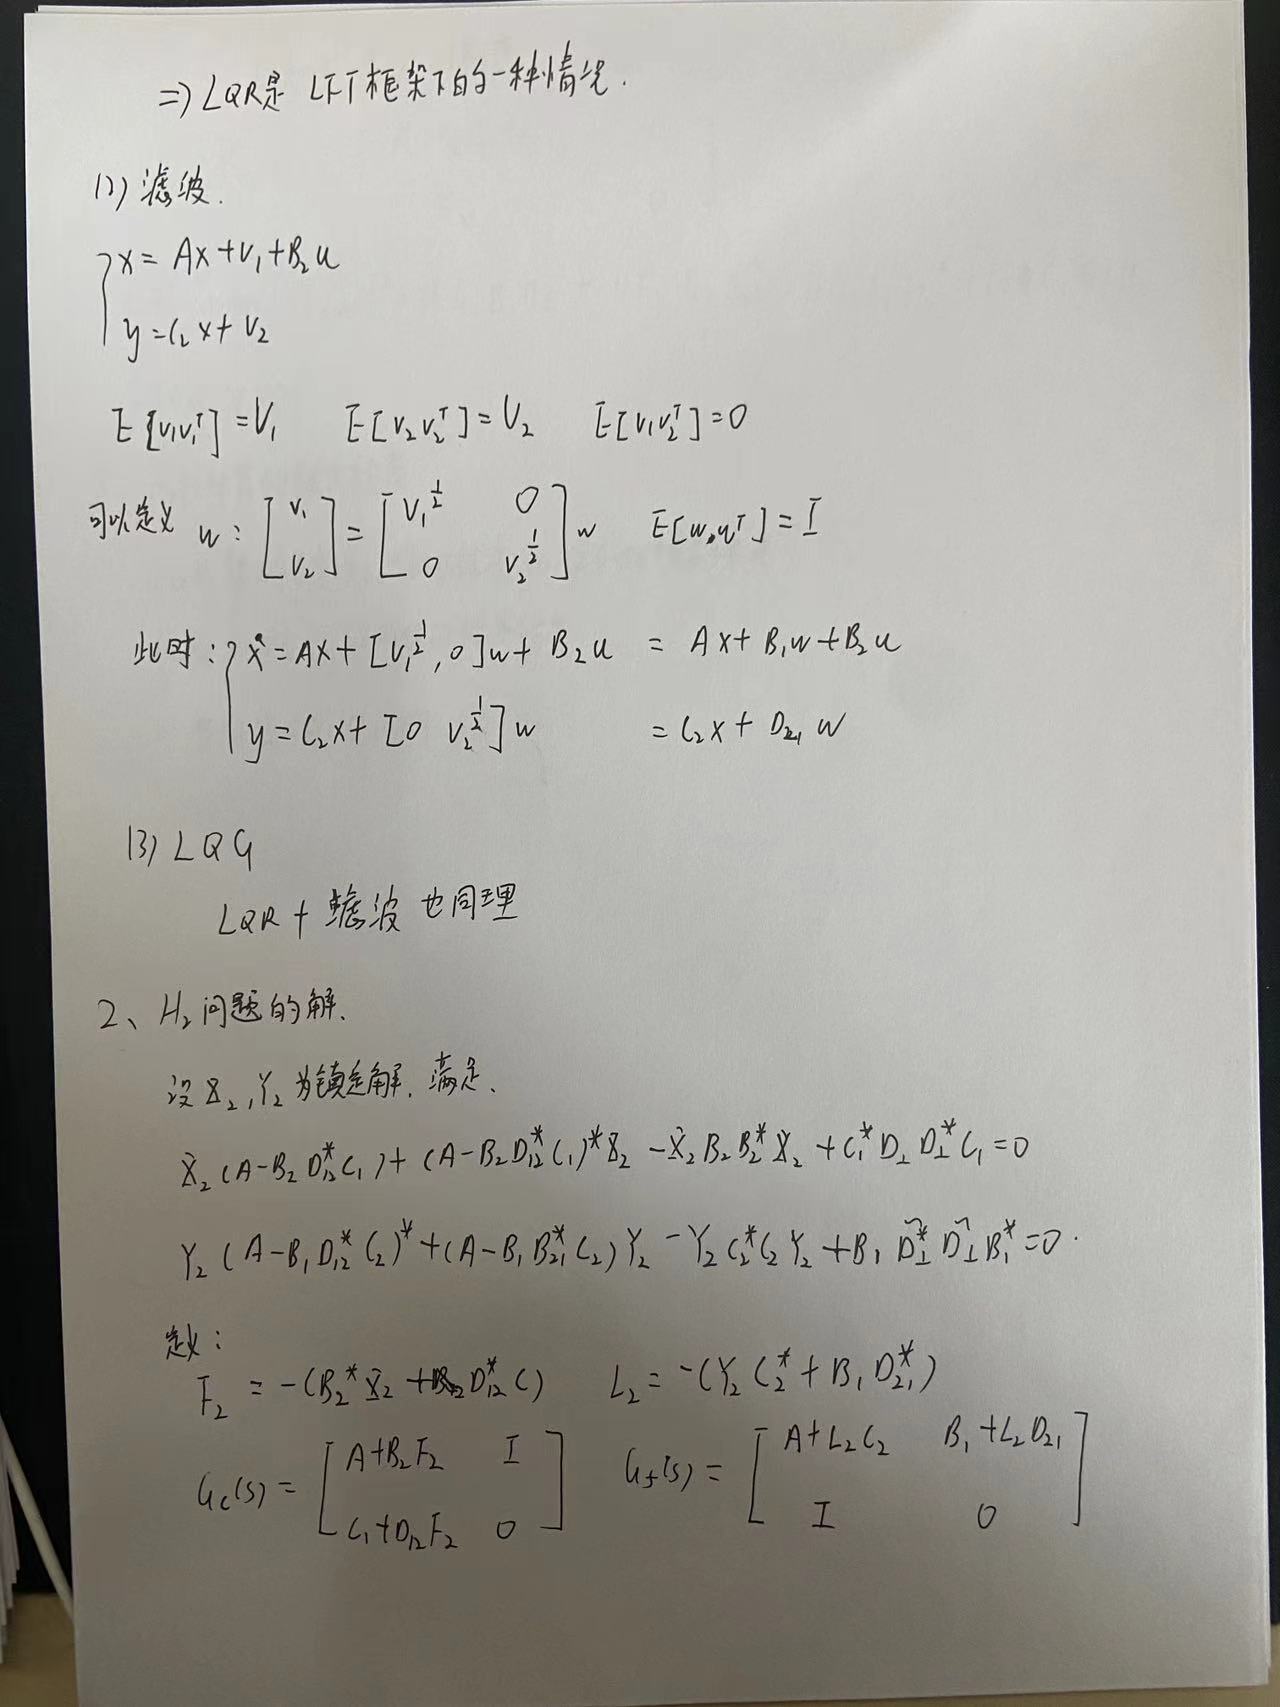 ⇒ LQR是 LFT框架下的一种情况.
(2) 滤波.
{ x = Ax + v₁ + B₂u
y = C₂x + v₂
E[v₁v₁ᵀ] = V₁ E[v₂v₂ᵀ] = V₂ E[v₁v₂ᵀ] = 0
可以定义 w: [v₁; v₂] = [V₁^½ 0; 0 V₂^½] w E[w,wᵀ] = I
此时: { ẋ = Ax + [V₁^½, 0]w + B₂u = Ax + B₁w + B₂u
y = C₂x + [0 V₂^½]w = C₂x + D₂₁ w
(3) LQG
LQR + 滤波 也同理
2、H₂问题的解.
设 X₂, Y₂ 为镇定解. 满足.
X₂(A-B₂D₁₂*C₁) + (A-B₂D₁₂*C₁)*X₂ - X₂B₂B₂*X₂ + C₁*D⊥D⊥*C₁ = 0
Y₂(A-B₁D₁₂*C₂)* + (A-B₁B₂₁*C₂)Y₂ - Y₂C₂*C₂Y₂ + B₁D̃⊥*D̃⊥B₁* = 0.
定义:
F₂ = -(B₂*X₂ + D₁₂*C) L₂ = -(Y₂C₂* + B₁D₂₁*)
G_c(s) = [A+B₂F₂ I; C₁+D₁₂F₂ 0] G_f(s) = [A+L₂C₂ B₁+L₂D₂₁; I 0]